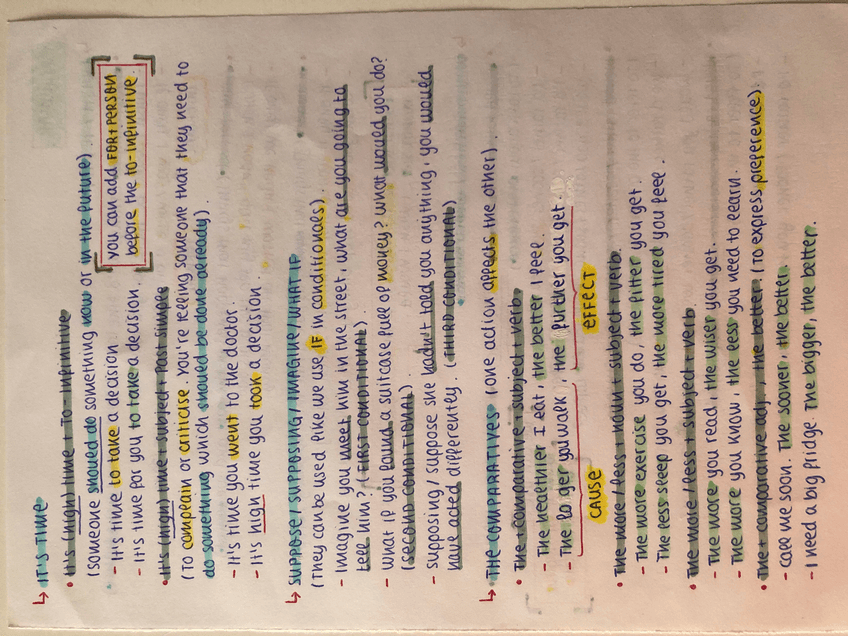 ↳ IT'S TIME
• It's (high) time + To - infinitive
(someone should do something now or in the future).
- It's time to take a decision.
- It's time for you to take a decision.
you can add FOR+PERSON
before the to-infinitive.
• It's (high) time + subject + Past simple
(To complain or criticise. You're telling someone that they need to
do something which should be done already).
- It's time you went to the doctor.
- It's high time you took a decision.
↳ SUPPOSE / SUPPOSING / IMAGINE / WHAT IF
(They can be used like we use IF in conditionals).
- Imagine you meet him in the street, what are you going to
tell him? (FIRST CONDITIONAL)
- What if you found a suitcase full of money? What would you do?
(SECOND CONDITIONAL)
- Supposing / suppose she hadn't told you anything, you would
have acted differently. (THIRD CONDITIONAL)
↳ THE COMPARATIVES (one action affects the other).
• The + comparative + subject + verb.
- The healthier I eat, the better I feel.
- The lo ger you walk, the further you get.
CAUSE EFFECT
• The more / less + noun + subject + verb.
- The more exercise you do, the fitter you get.
- The less sleep you get, the more tired you feel.
• The more / less + subject + verb
- The more you read, the wiser you get.
- The more you know, the less you need to learn.
• The + comparative adj., the better (to express preference).
- Call me soon. The sooner, the better.
- I need a big fridge. The bigger, the better.